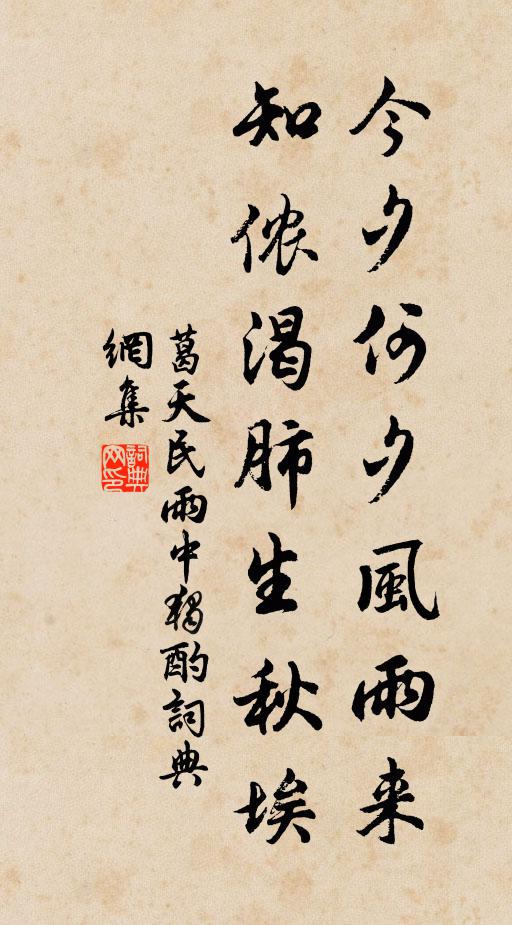 今夕何夕風雨来
知侬渴肺生秋埃
葛天民雨中獨酌詞典
網集
詞典網印